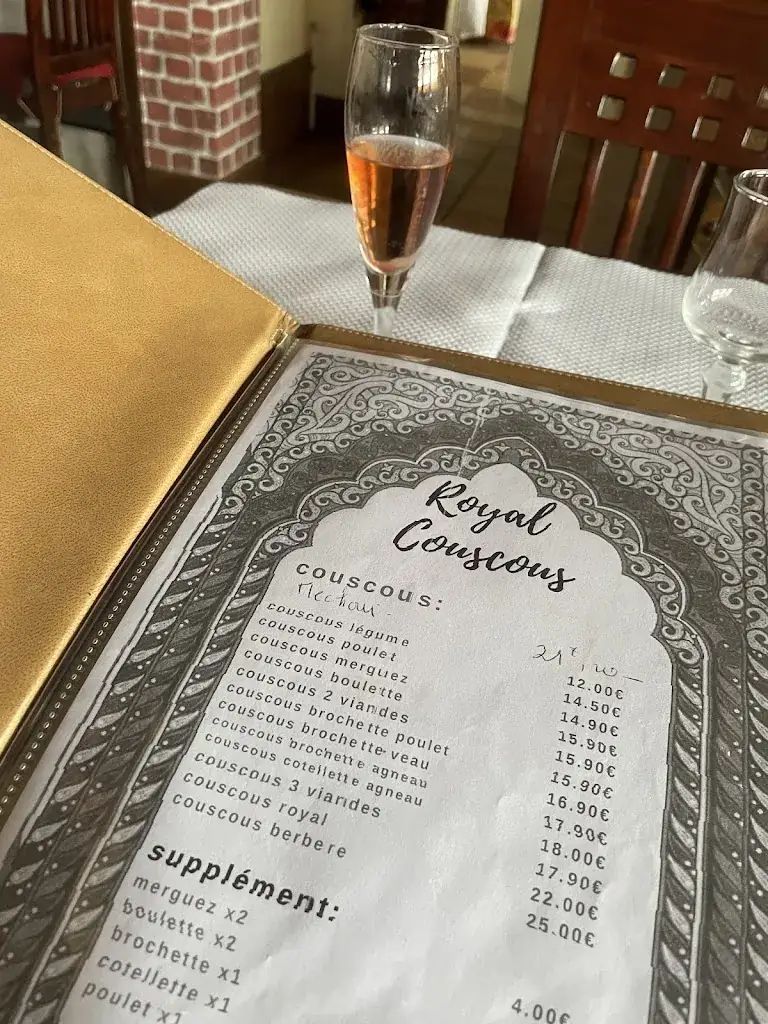 Royal
Couscous
couscous:
Mechoui
couscous légume 12.00€
couscous poulet 14.50€
couscous merguez 14.90€
couscous boulette 15.90€
couscous 2 viandes 15.90€
couscous brochette poulet 15.90€
couscous brochette veau 16.90€
couscous brochette agneau 17.90€
couscous cotellette agneau 18.00€
couscous 3 viandes 17.90€
couscous royal 22.00€
couscous berbere 25.00€
supplément:
merguez x2 4.00€
boulette x2
brochette x1
cotellette x1
poulet x1